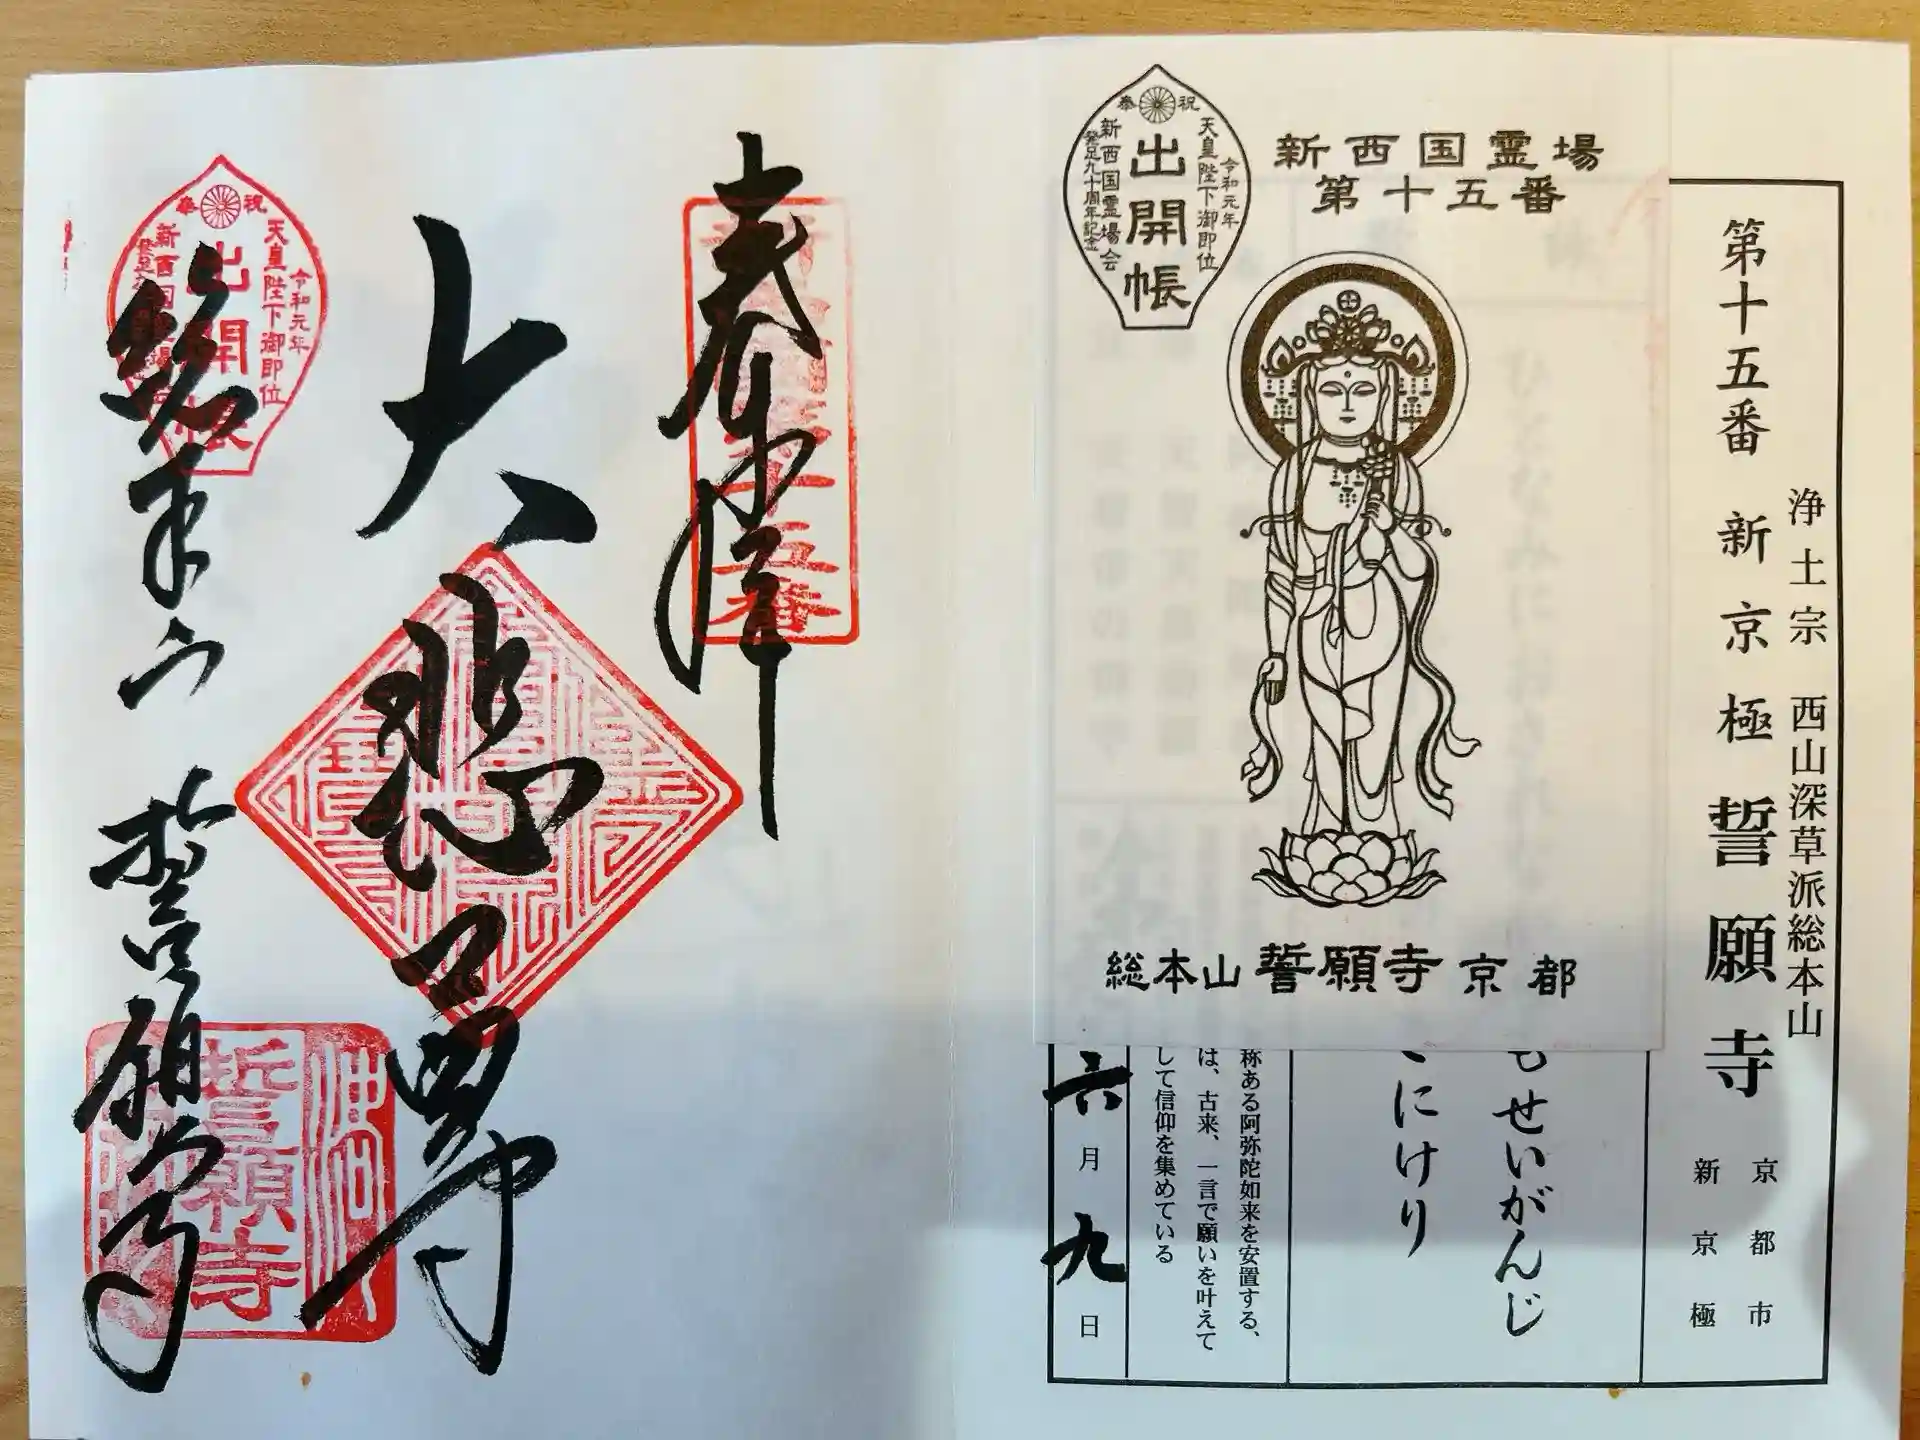 第十五番 新京極 誓願寺
浄土宗 西山深草派総本山
京都市
新京極
奉祝
天皇陛下御即位
令和元年
出開帳
新西国霊場会
発足九十周年記念
新西国霊場
第十五番
総本山 誓願寺 京都
もせいがんじ
にけり
称ある阿弥陀如来を安置する、
は、古来、一言で願いを叶えて
して信仰を集めている
六月九日
奉拝
大悲尊
総本山 誓願寺
奉祝
天皇陛下御即位
令和元年
出開帳
誓願寺